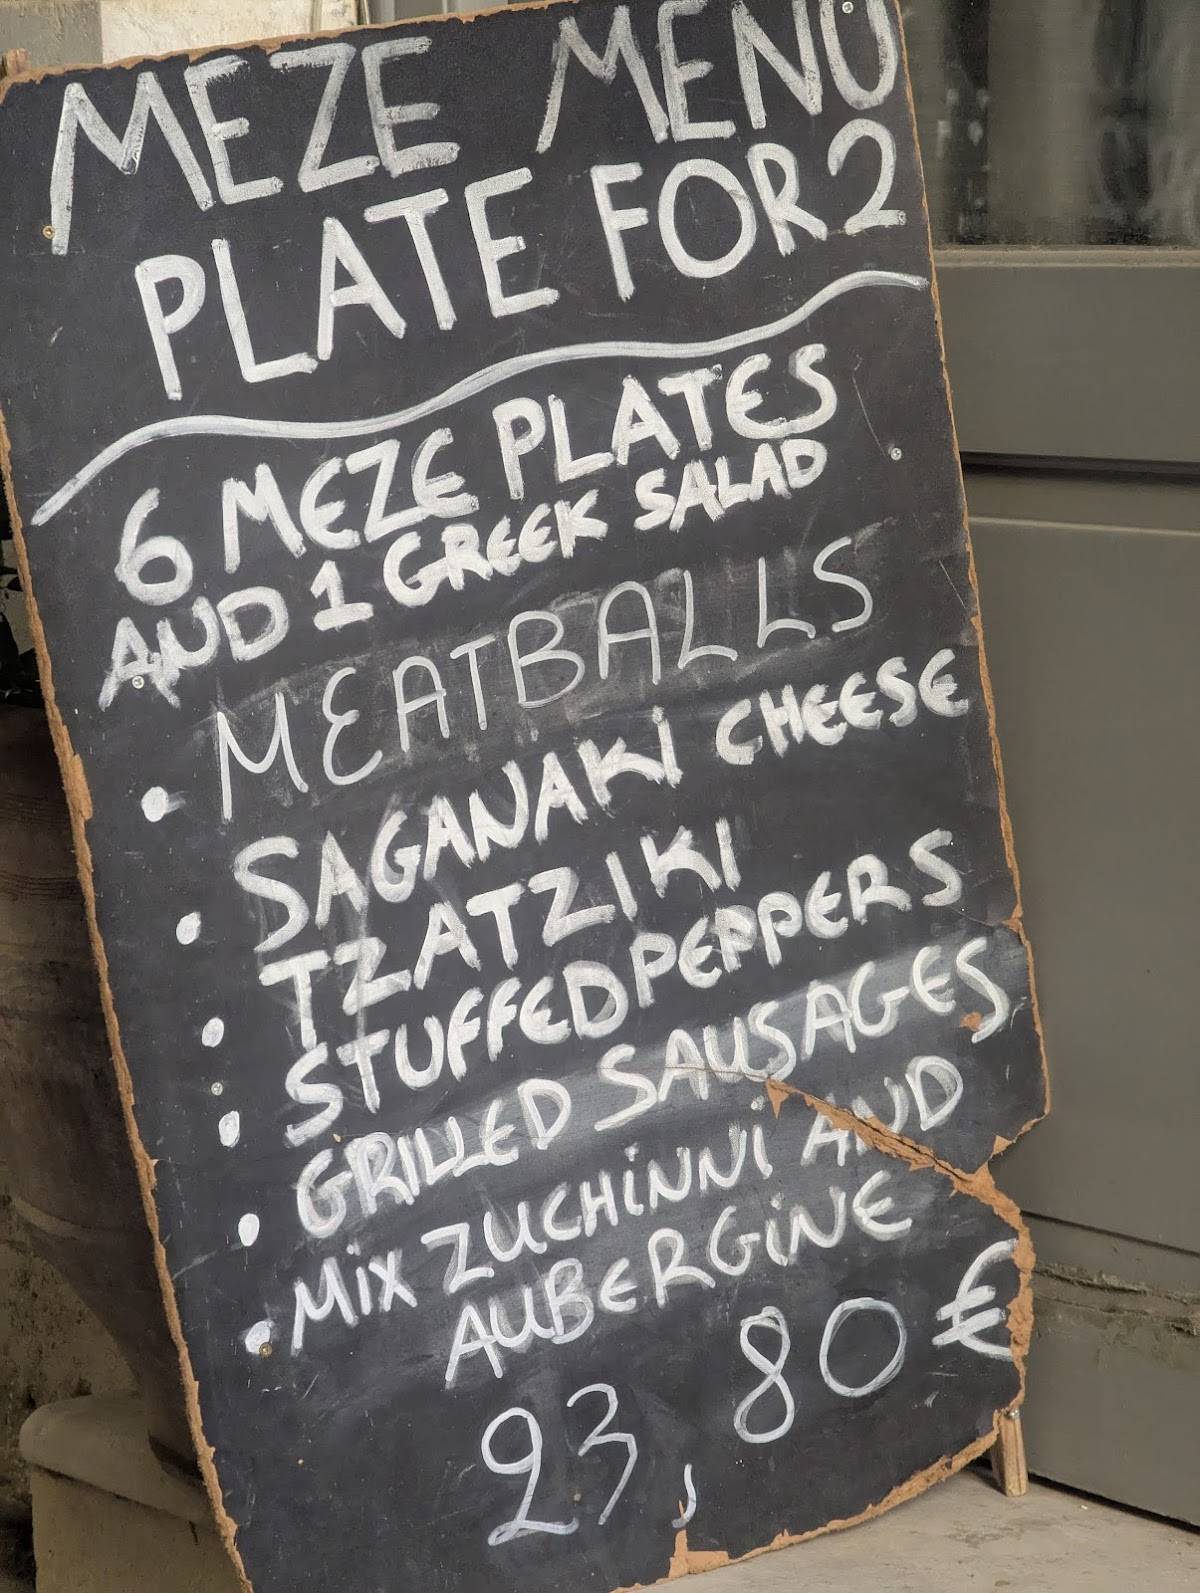 MEZE MENU
PLATE FOR 2
6 MEZE PLATES
AND 1 GREEK SALAD
• MEATBALLS
• SAGANAKI CHEESE
• TZATZIKI
• STUFFED PEPPERS
• GRILLED SAUSAGES
• Mix ZUCHiNNi AND
AUBERGiNE
23,80€